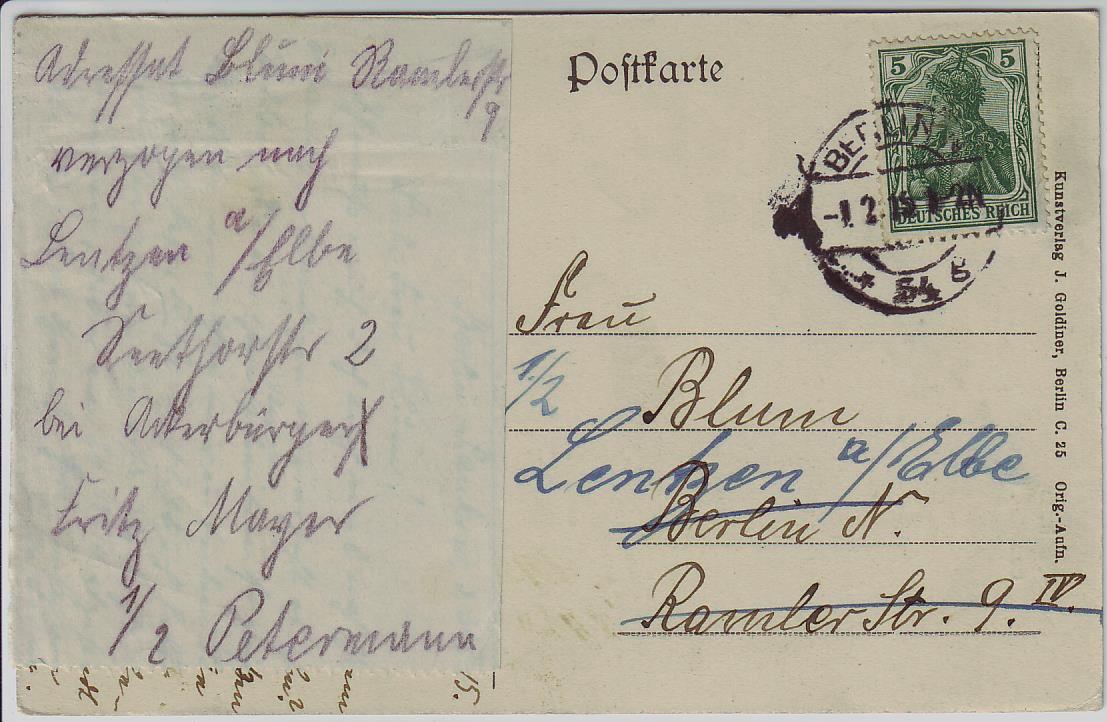 Adressat Blum Ramlerstr
9
verzogen nach
Lentzen a/Elbe
Seethorstr 2
bei Ackerbürger
Fritz Mayer
1/2 Petermann
15.
Postkarte
5 5
DEUTSCHES REICH
BERLIN
-1.2.15 1-2N
* 54 b
Frau
1/2
Blum
Lentzen a/Elbe
Berlin N.
Ramler Str. 9. IV.
Kunstverlag J. Goldiner, Berlin C. 25 Orig.-Aufn.